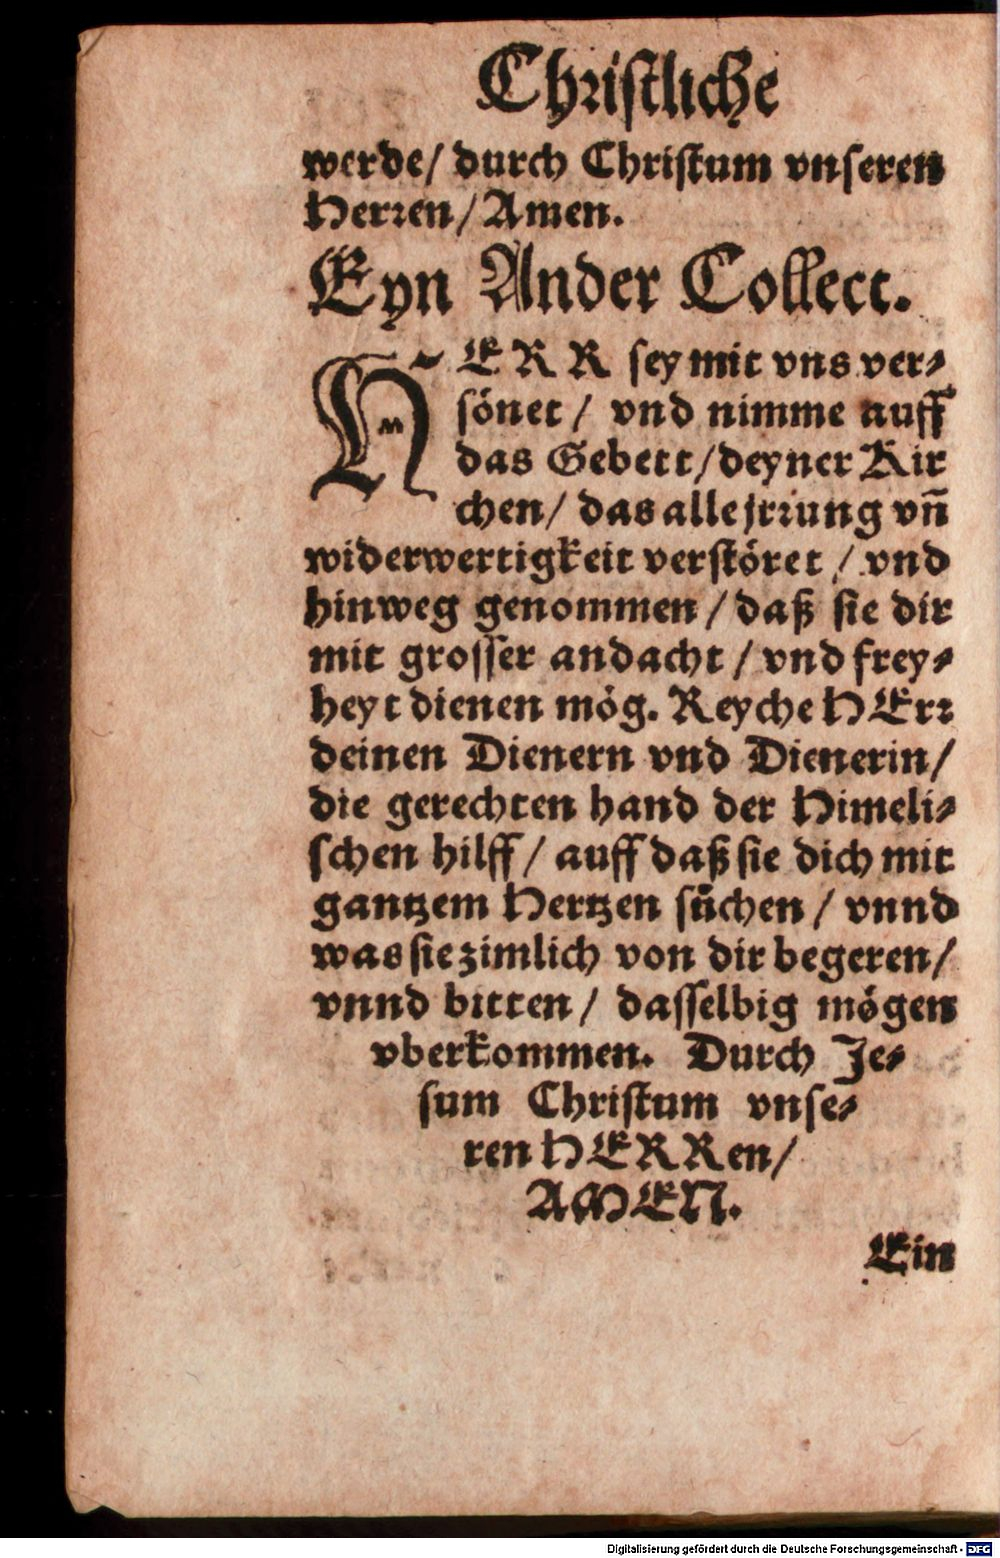 Christliche
werde/ durch Christum vnseren
Herren/ Amen.
Eyn Ander Collect.
HERR sey mit vns ver⸗
sönet / vnd nimme auff
das Gebett/deyner Kir
chen/ das alle jrrung vn̄
widerwertigkeit verstöret / vnd
hinweg genommen / daß sie dir
mit grosser andacht / vnd frey⸗
heyt dienen mög. Reyche HErr
deinen Dienern vnd Dienerin/
die gerechten hand der Himeli⸗
schen hilff / auff daß sie dich mit
gantzem Hertzen suͤchen / vnnd
was sie zimlich von dir begeren/
vnnd bitten / dasselbig mögen
vberkommen. Durch Je⸗
sum Christum vnse⸗
ren HERRen/
AMEN.
Ein
Digitalisierung gefördert durch die Deutsche Forschungsgemeinschaft - DFG